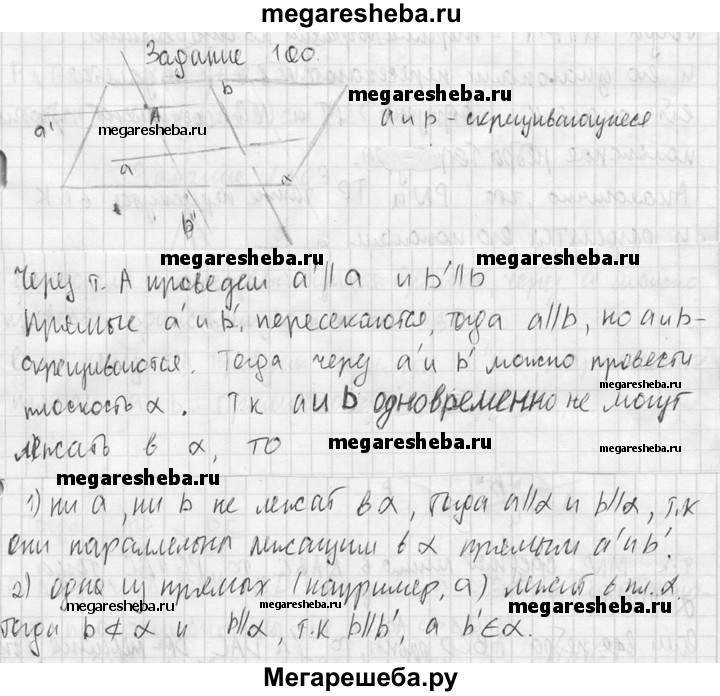 megaresheba.ru
Задание 100.
b
megaresheba.ru
a'
A
megaresheba.ru
a и b - скрещивающиеся
a
α
b'
megaresheba.ru
megaresheba.ru
Через т. А проведем a' || a и b' || b
Прямые a' и b', пересекаются, тогда a||b, но a и b -
скрещиваются. Тогда через a' и b' можно провести
megaresheba.ru
плоскость α. Т.к a и b одновременно не могут
лежать в α, то
megaresheba.ru
megaresheba.ru
megaresheba.ru
1) ни a, ни b не лежат в α, тогда a||α и b||α, т.к
они параллельны лежащим в α прямым a' и b'.
megaresheba.ru
2) одна из прямых (например, a) лежит в пл. α.
megaresheba.ru
megaresheba.ru
Тогда b ⊄ α и b||α, т.к b||b', а b' ∈ α.
Мегарешеба.ру